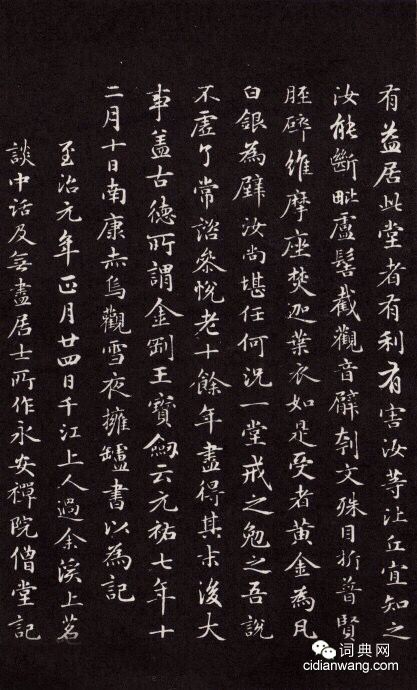 有益居此堂者有利有害汝等比丘宜知之
汝能斷毗盧髻截觀音臂刳文殊目折普賢
脛碎維摩座焚迦葉衣如是受者黃金為瓦
白銀為壁汝尚堪任何況一堂戒之勉之吾說
不虛了常諮參悅老十餘年盡得其末後大
事蓋古德所謂金剛王寶劍云元祐七年十
二月十日南康赤烏觀雪夜擁罏書以為記
至治元年正月廿四日千江上人過余溪上茗
談中話及無盡居士所作永安禪院僧堂記
词典网
cidianwang.com